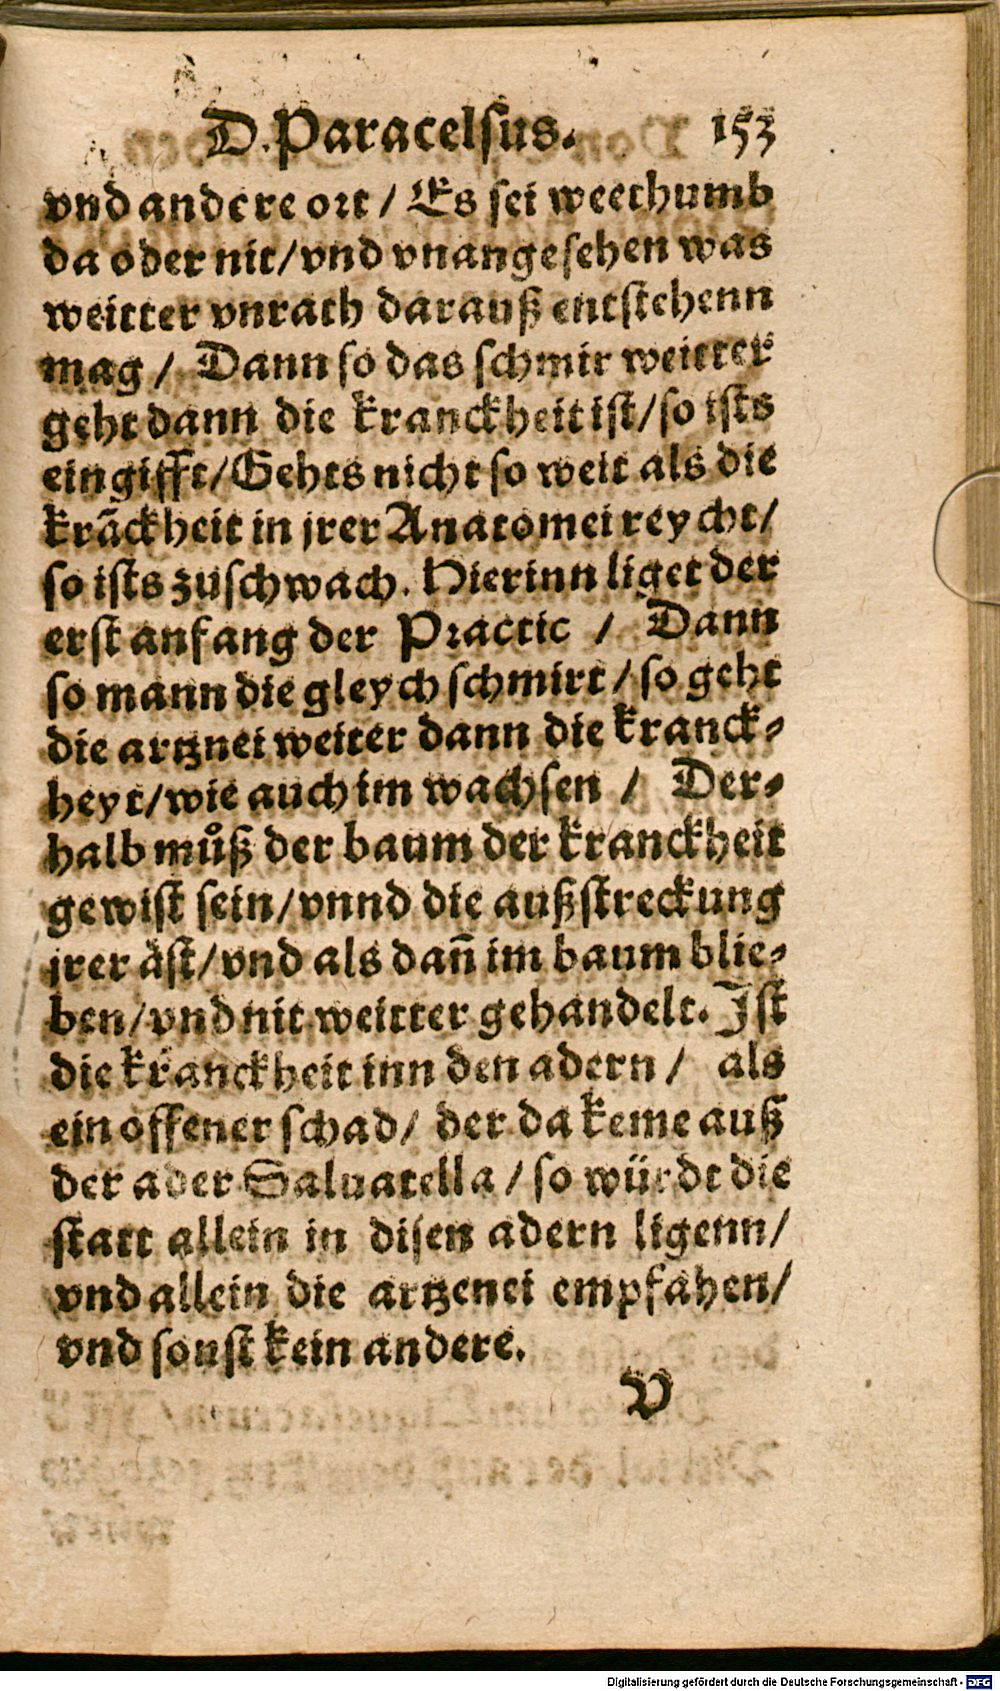 D. Paracelsus. 153
vnd andere ort / Es sei weethumb
da oder nit / vnd vnangesehen was
weitter vnrath darauß entstehenn
mag / Dann so das schmir weitter
geht dann die kranckheit ist / so ists
ein gifft / Gehts nicht so weit als die
krãckheit in jrer Anatomei reycht /
so ists zuschwach. Hierinn liget der
erst anfang der Practic / Dann
so mann die gleych schmirt / so geht
die artznei weiter dann die kranck⸗
heyt / wie auch im wachsen / Der⸗
halb můß der baum der kranckheit
gewist sein / vnnd die außstreckung
jrer äst / vnd als dañ im baum blie⸗
ben / vnd nit weitter gehandelt. Ist
die kranckheit inn den adern / als
ein offener schad / der da keme auß
der ader Saluatella / so würdt die
statt allein in disen adern ligenn /
vnd allein die artzenei empfahen /
vnd sonst kein andere.
V
Digitalisierung gefördert durch die Deutsche Forschungsgemeinschaft - DFG